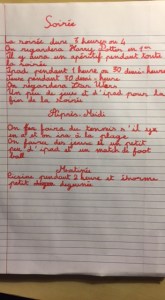 Soirée
La soirée dure 3 heures ou 4
On regardera Harry Potter en 1er
Il y aura un apéritif pendant toute
la soirée
Ipad pendant 1 heure ou 30 demi-heure
jeux pendant 30 demi-heure
On regardera Star Wars
Un peu de jeux et d'ipad pour la
fin de la soirée
Après-Midi
On fera faire du tennis s'il y a
et on ira à la plage
On faire des jeux et un petit
peu d'ipad et un match de foot
ball
Matinée
Piscine pendant 2 heure et
petit déjeuner